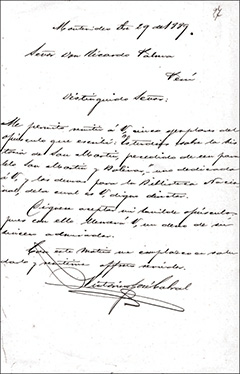 Montevideo Dbre 29 de 1889.
Señor Don Ricardo Palma
Perú
Distinguido Señor:
Me permito remitir á U, cinco ejemplares del
opúsculo que escribí: Estudios sobre la his
toria de San Martin, precedido de un para
lelo San Martin y Bolivar, uno dedicado
á U, y los demas para la Biblioteca Nacio
nal, de la cual es U, digno director.
Dígnese aceptar mi humilde opúsculo,
pues con ello llenará U, un deseo de su
sincero admirador.
Con este motivo me complazco en salu
darlo y